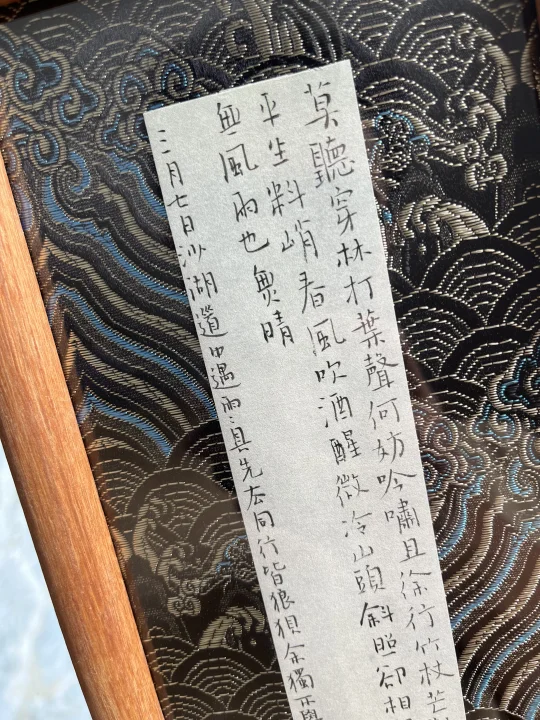 莫聽穿林打葉聲何妨吟嘯且徐行竹杖芒
平生料峭春風吹酒醒微冷山頭斜照卻相
無風雨也無晴
三月七日沙湖道中遇雨〻具先去同行皆狼狽余獨不